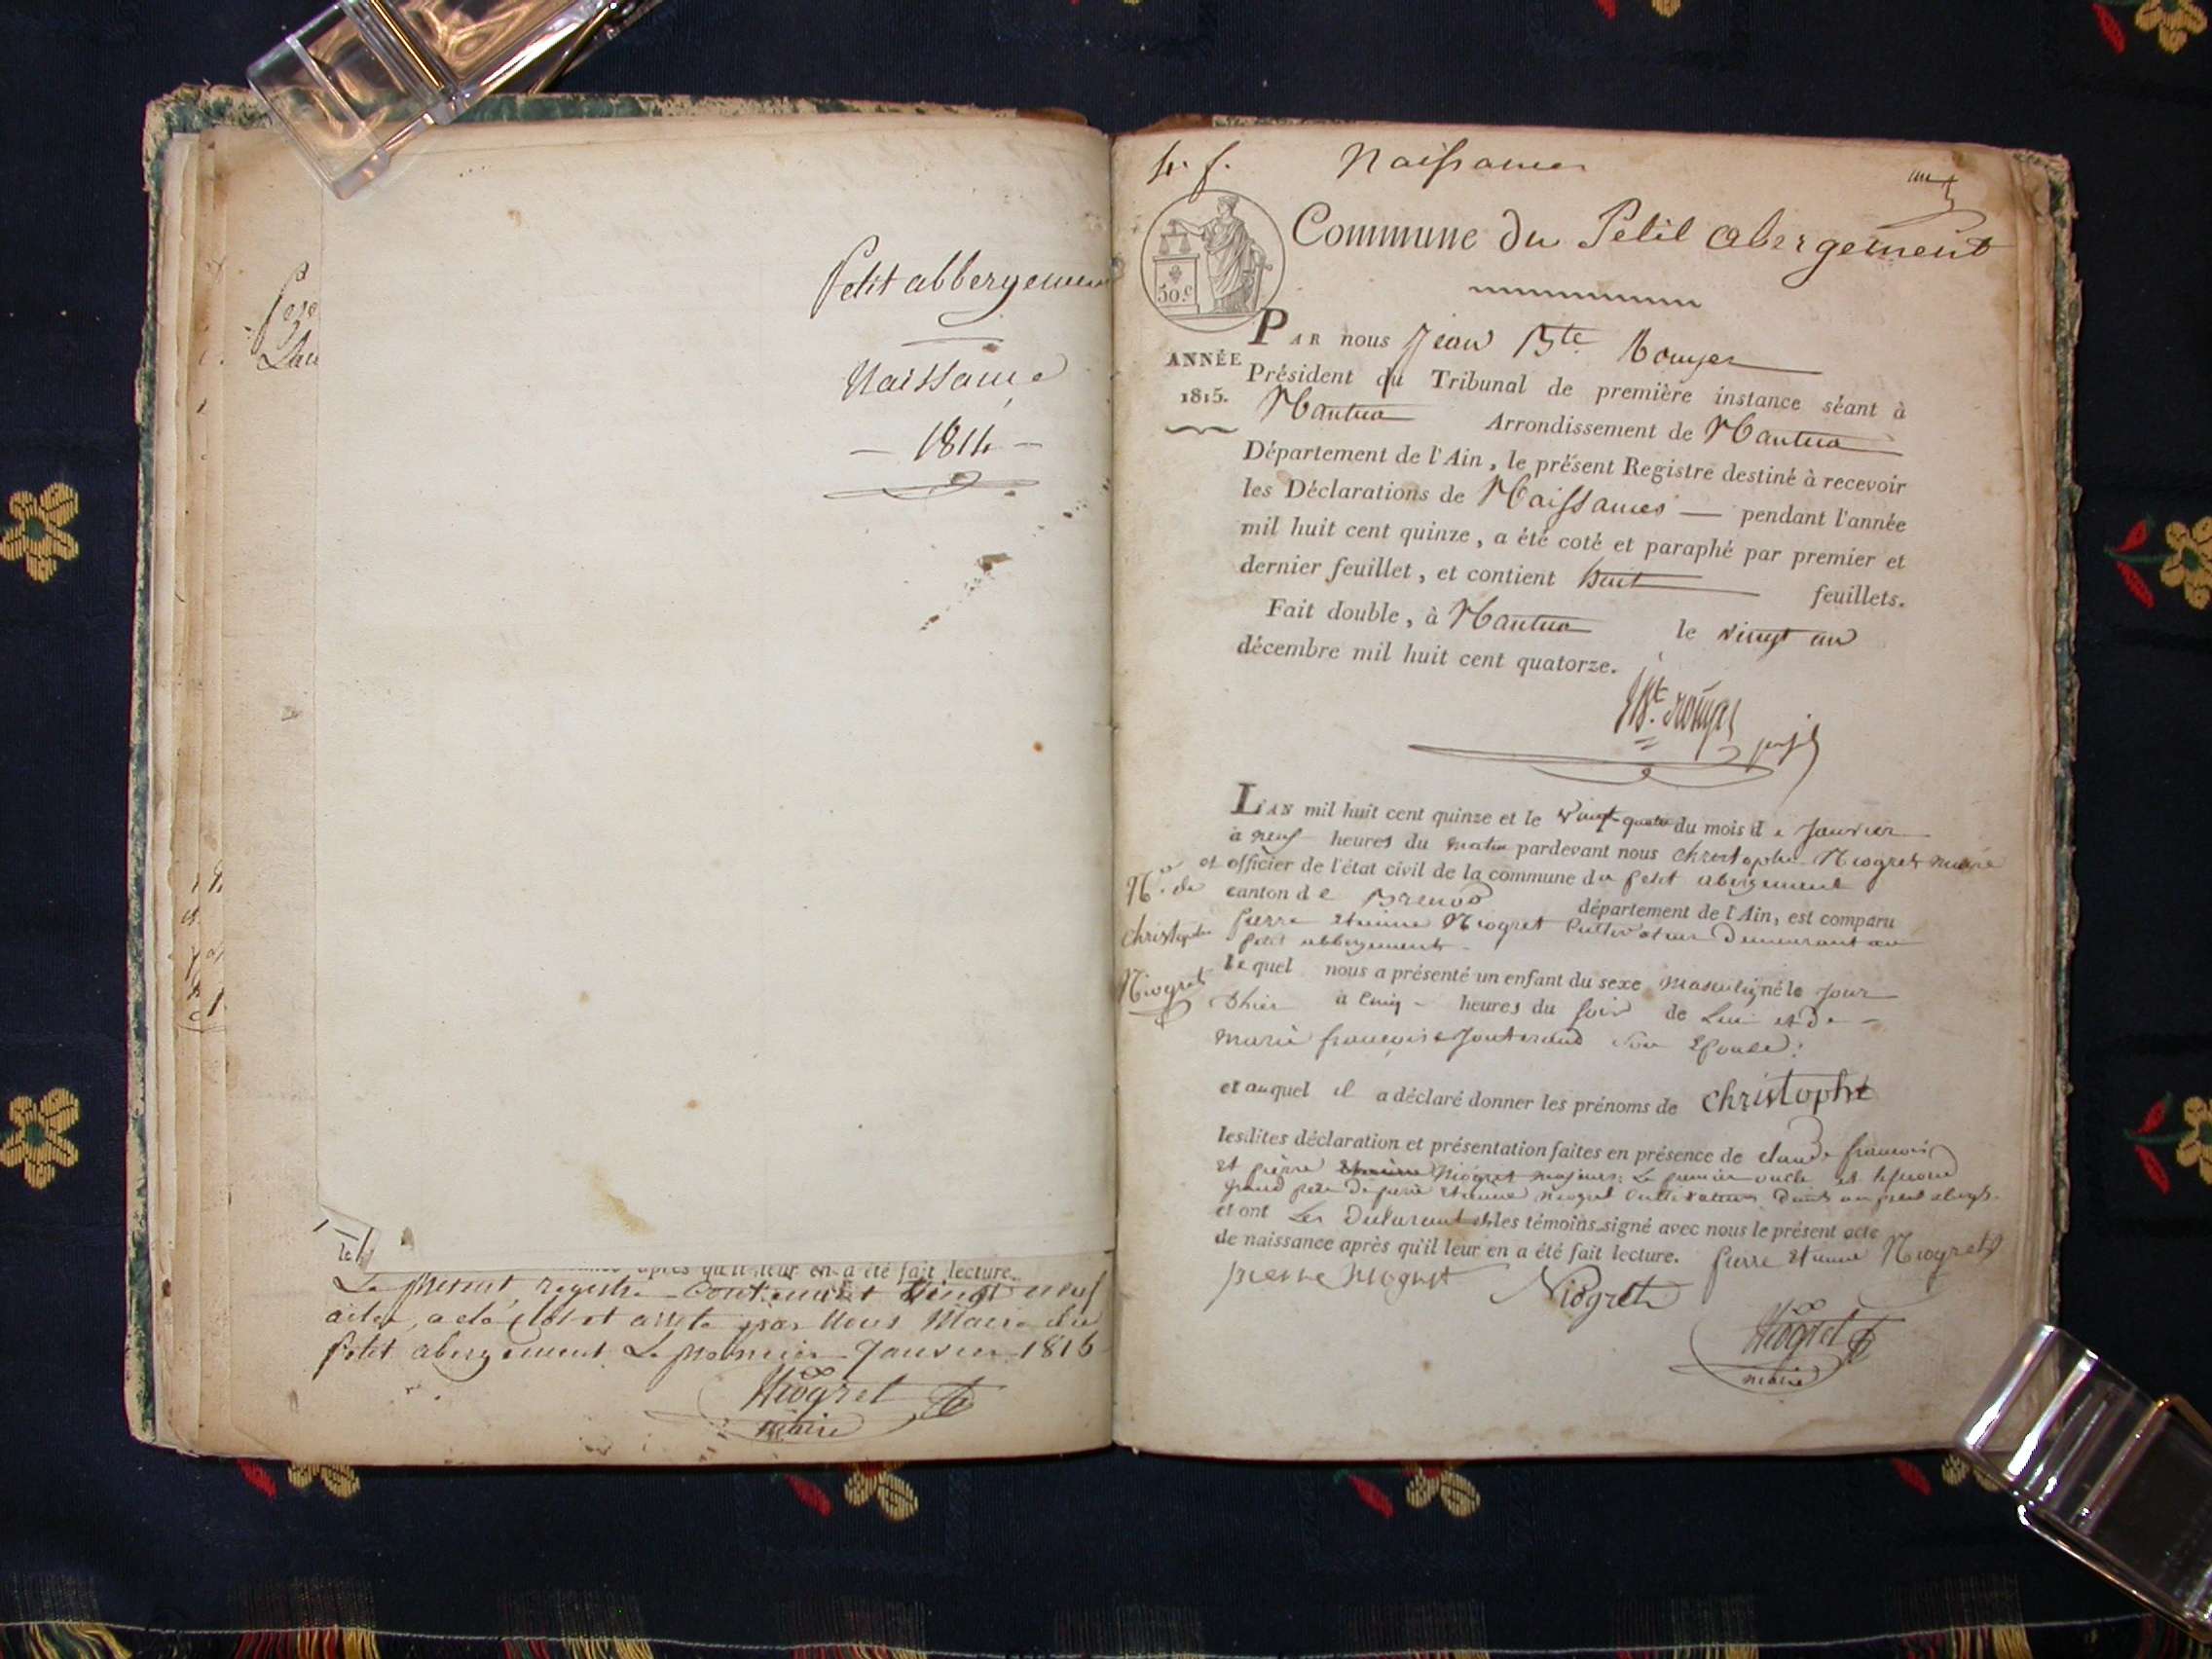 Petit abbergement
Naissance
— 1814 —
après qu'il leur en a été fait lecture.
Le présent registre contenant vingt neuf
actes, a été clos et arrêté par Nous Maire du
petit abergement Le premier Janvier 1816
Niogret
maire
4. f. Naissances
Commune du Petit abergement
50.c
PAR nous Jean Bte Rouyer
ANNÉE
1815.
Président du Tribunal de première instance séant à
Nantua Arrondissement de Nantua
Département de l'Ain, le présent Registre destiné à recevoir
les Déclarations de Naissances — pendant l'année
mil huit cent quinze, a été coté et paraphé par premier et
dernier feuillet, et contient huit feuillets.
Fait double, à Nantua le vingt un
décembre mil huit cent quatorze.
L'AN mil huit cent quinze et le vingt quatre du mois de Janvier
à neuf heures du matin pardevant nous Christophe Niogret maire
et officier de l'état civil de la commune du petit abergement
canton de Brenod département de l'Ain, est comparu
Nce de
Christophe
Niogret
pierre etienne Niogret Cultivateur Demeurant au
petit abbergement
lequel nous a présenté un enfant du sexe masculin né le jour
D'hier à Cinq heures du soir de Lui et de
marie françoise Jouterand Son Epouse.
et auquel il a déclaré donner les prénoms de Christophe
lesdites déclaration et présentation faites en présence de claude francois
et pierre etienne Niogret majeurs, Le premier oncle et le second
grand père de pierre etienne niogret Cultivateurs
et ont Les Declarant et les témoins signé avec nous le présent acte
de naissance après qu'il leur en a été fait lecture. pierre etienne Niogret
pierre niogret Niogret
Niogret
maire